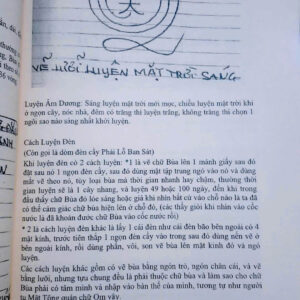 VẼ HỒI LUYỆN MẶT TRỜI SÁNG
Luyện Âm Dương: Sáng luyện mặt trời mới mọc, chiều luyện mặt trời khi
ở ngọn cây, nóc nhà, đêm có trăng thì luyện trăng, không trăng thì chọn 1
ngôi sao nào sáng nhất khởi luyện.
Cách Luyện Đèn
(Còn gọi là dòm đèn cầy Phái Lỗ Ban Sát)
Khi luyện đèn có 2 cách luyện: *1 là vẽ chữ Bùa lên 1 mảnh giấy sau đó
đặt sau nó 1 ngọn đèn cầy, sau đó dùng mắt tập trung ngó vào nó và dùng
mắt vẽ theo nó, tùy loại bùa mà thời gian nhanh hay chậm, thường thời
gian luyện sẽ là 1 cây nhang, và luyện 49 hoặc 100 ngày, đến khi trong
đầu thấy chữ Bùa đó lóe sáng hay giả khi nhìn bất cứ vào chỗ nào là ta đã
có thể cảm giác chữ bùa hiện lên ở chỗ đó, các thầy giỏi khi nhìn vào cốc
nước là đã khoán được chữ Bùa vào cốc nước rồi)
* 2 là cách luyện đèn khác là lấy 1 cái đèn như cái đèn bão bên ngoài có 4
mặt kính, trước tiên thắp 1 ngọn đèn cầy vào trong sau đó dùng nến vẽ ở
bên ngoài kính, rồi dùng phấn, vôi, son vẽ bùa lên mặt kính đó và ngó
luyện.
Các cách luyện khác gồm có vẽ bằng ngón trỏ, ngón chân cái, và vẽ
bằng lưỡi, nhưng tựu chung đều là phải thuộc chữ bùa và làm sao cho chữ
Bùa phải có tâm mình và nhập vào bản thể của mình, tương tự như người
tu Mật Tông quán chữ Om vậy.